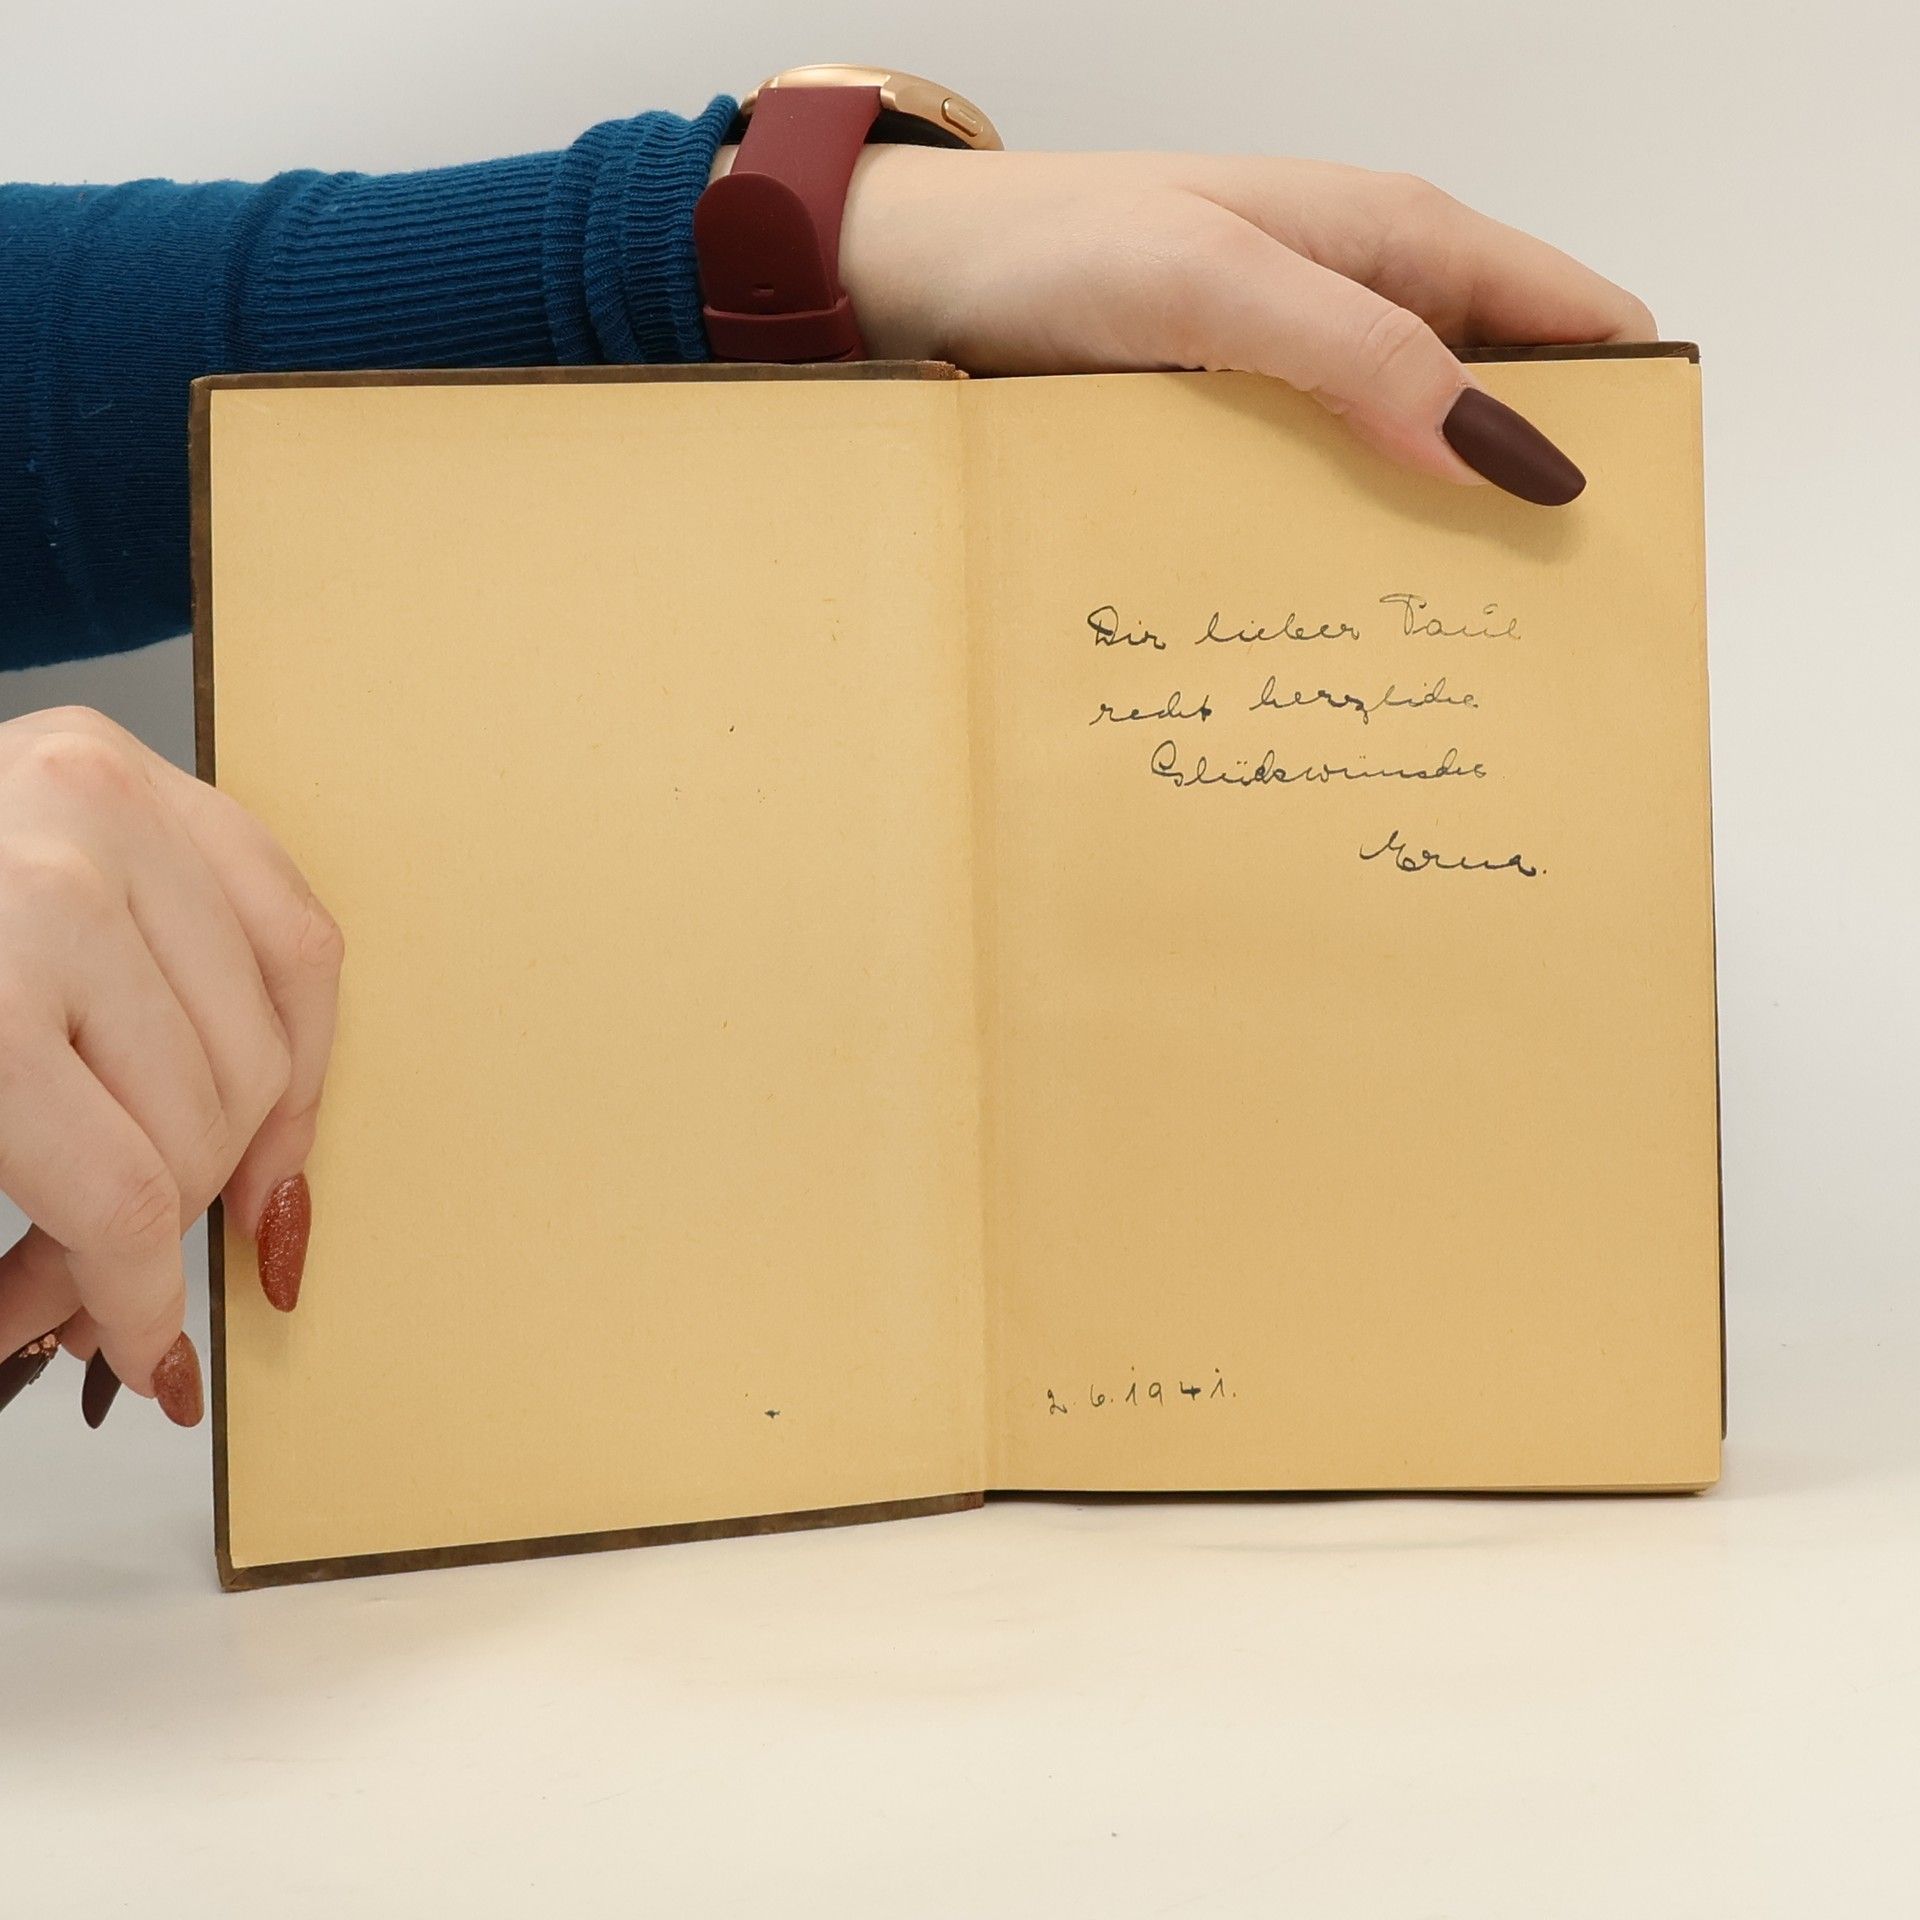 Dir lieber Paul
recht herzliche
Glückwünsche
Erna.
2.6.1941.